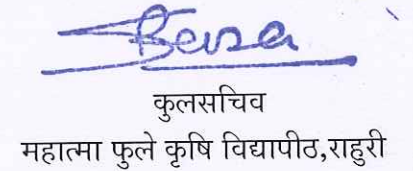 कुलसचिव
महात्मा फुले कृषि विद्यापीठ,राहुरी